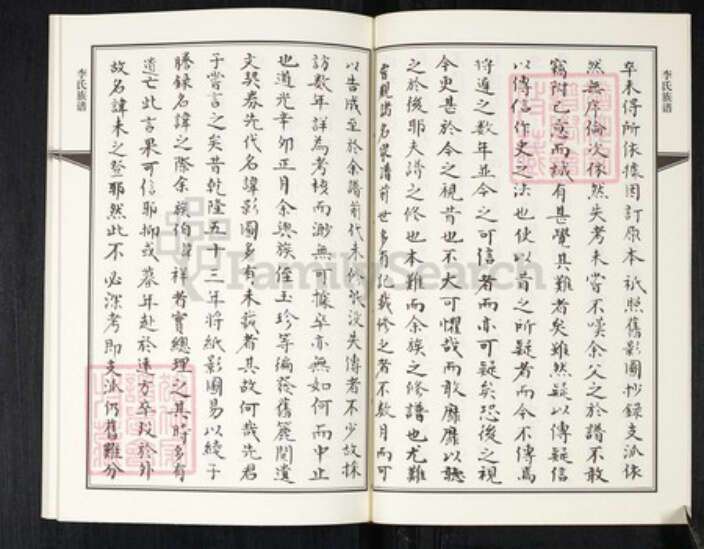 李氏族谱
卒未得所依據因訂原本祇照舊影圖抄錄支派依
然無序倫次依然失考未嘗不嘆余父之於譜不敢
竊附己意而械有甚覺其難者矣雖然疑以傳疑信
以傳信作史之法也使以昔之所疑者而今不傳焉
將遁之數年並今之可信者而亦可疑矣恐後之視
今更甚於今之視昔也不大可懼哉而敢靡靡以聽
之於後耶夫譜之修也本難而余族之修譜也尤難
嘗觀當名家譜前世多有記載修之者不數月而可
以告成至於余譜前代未修既沒失傳者不少故採
訪數年詳為考校而渺無可據卒亦無如何而中止
也道光辛卯正月余與族侄玉珍等編發舊簏閱遺
文契券先代名諱影圖多有未載者其故何哉先君
子嘗言之矣昔乾隆五十三年將紙影圖易以綾子
謄錄名諱之際余族伯諱祥者實總理之其時多有
遺亡此言果可信耶抑或暮年赴於遠方卒歿於外
故名諱未之登耶然此不必深考即支派仍舊難分
李氏族谱
FamilySearch